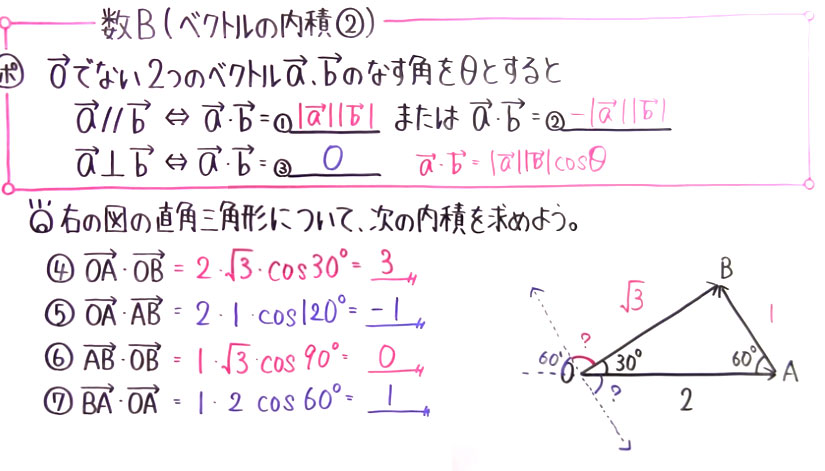 数B(ベクトルの内積②)
ポ 0⃗でない2つのベクトルa⃗、b⃗のなす角をθとすると
a⃗ // b⃗ ⇔ a⃗・b⃗=①|a⃗||b⃗| または a⃗・b⃗=②-|a⃗||b⃗|
a⃗⊥b⃗ ⇔ a⃗・b⃗=③ 0 a⃗・b⃗=|a⃗||b⃗|cosθ
右の図の直角三角形について、次の内積を求めよう。
④ OA→・OB→ = 2・√3・cos30°= 3
⑤ OA→・AB→ = 2・1・cos120°= -1
⑥ AB→・OB→ = 1・√3・cos90°= 0
⑦ BA→・OA→ = 1・2 cos60°= 1
B
√3
1
?
60°
O
30°
60°
A
?
2